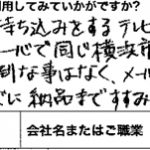 利用してみていかがですか?
持ち込みをするテレビ
一心で同じ横浜
倒な事はなく、メール
ぐに納品まですすみ
会社名またはご職業